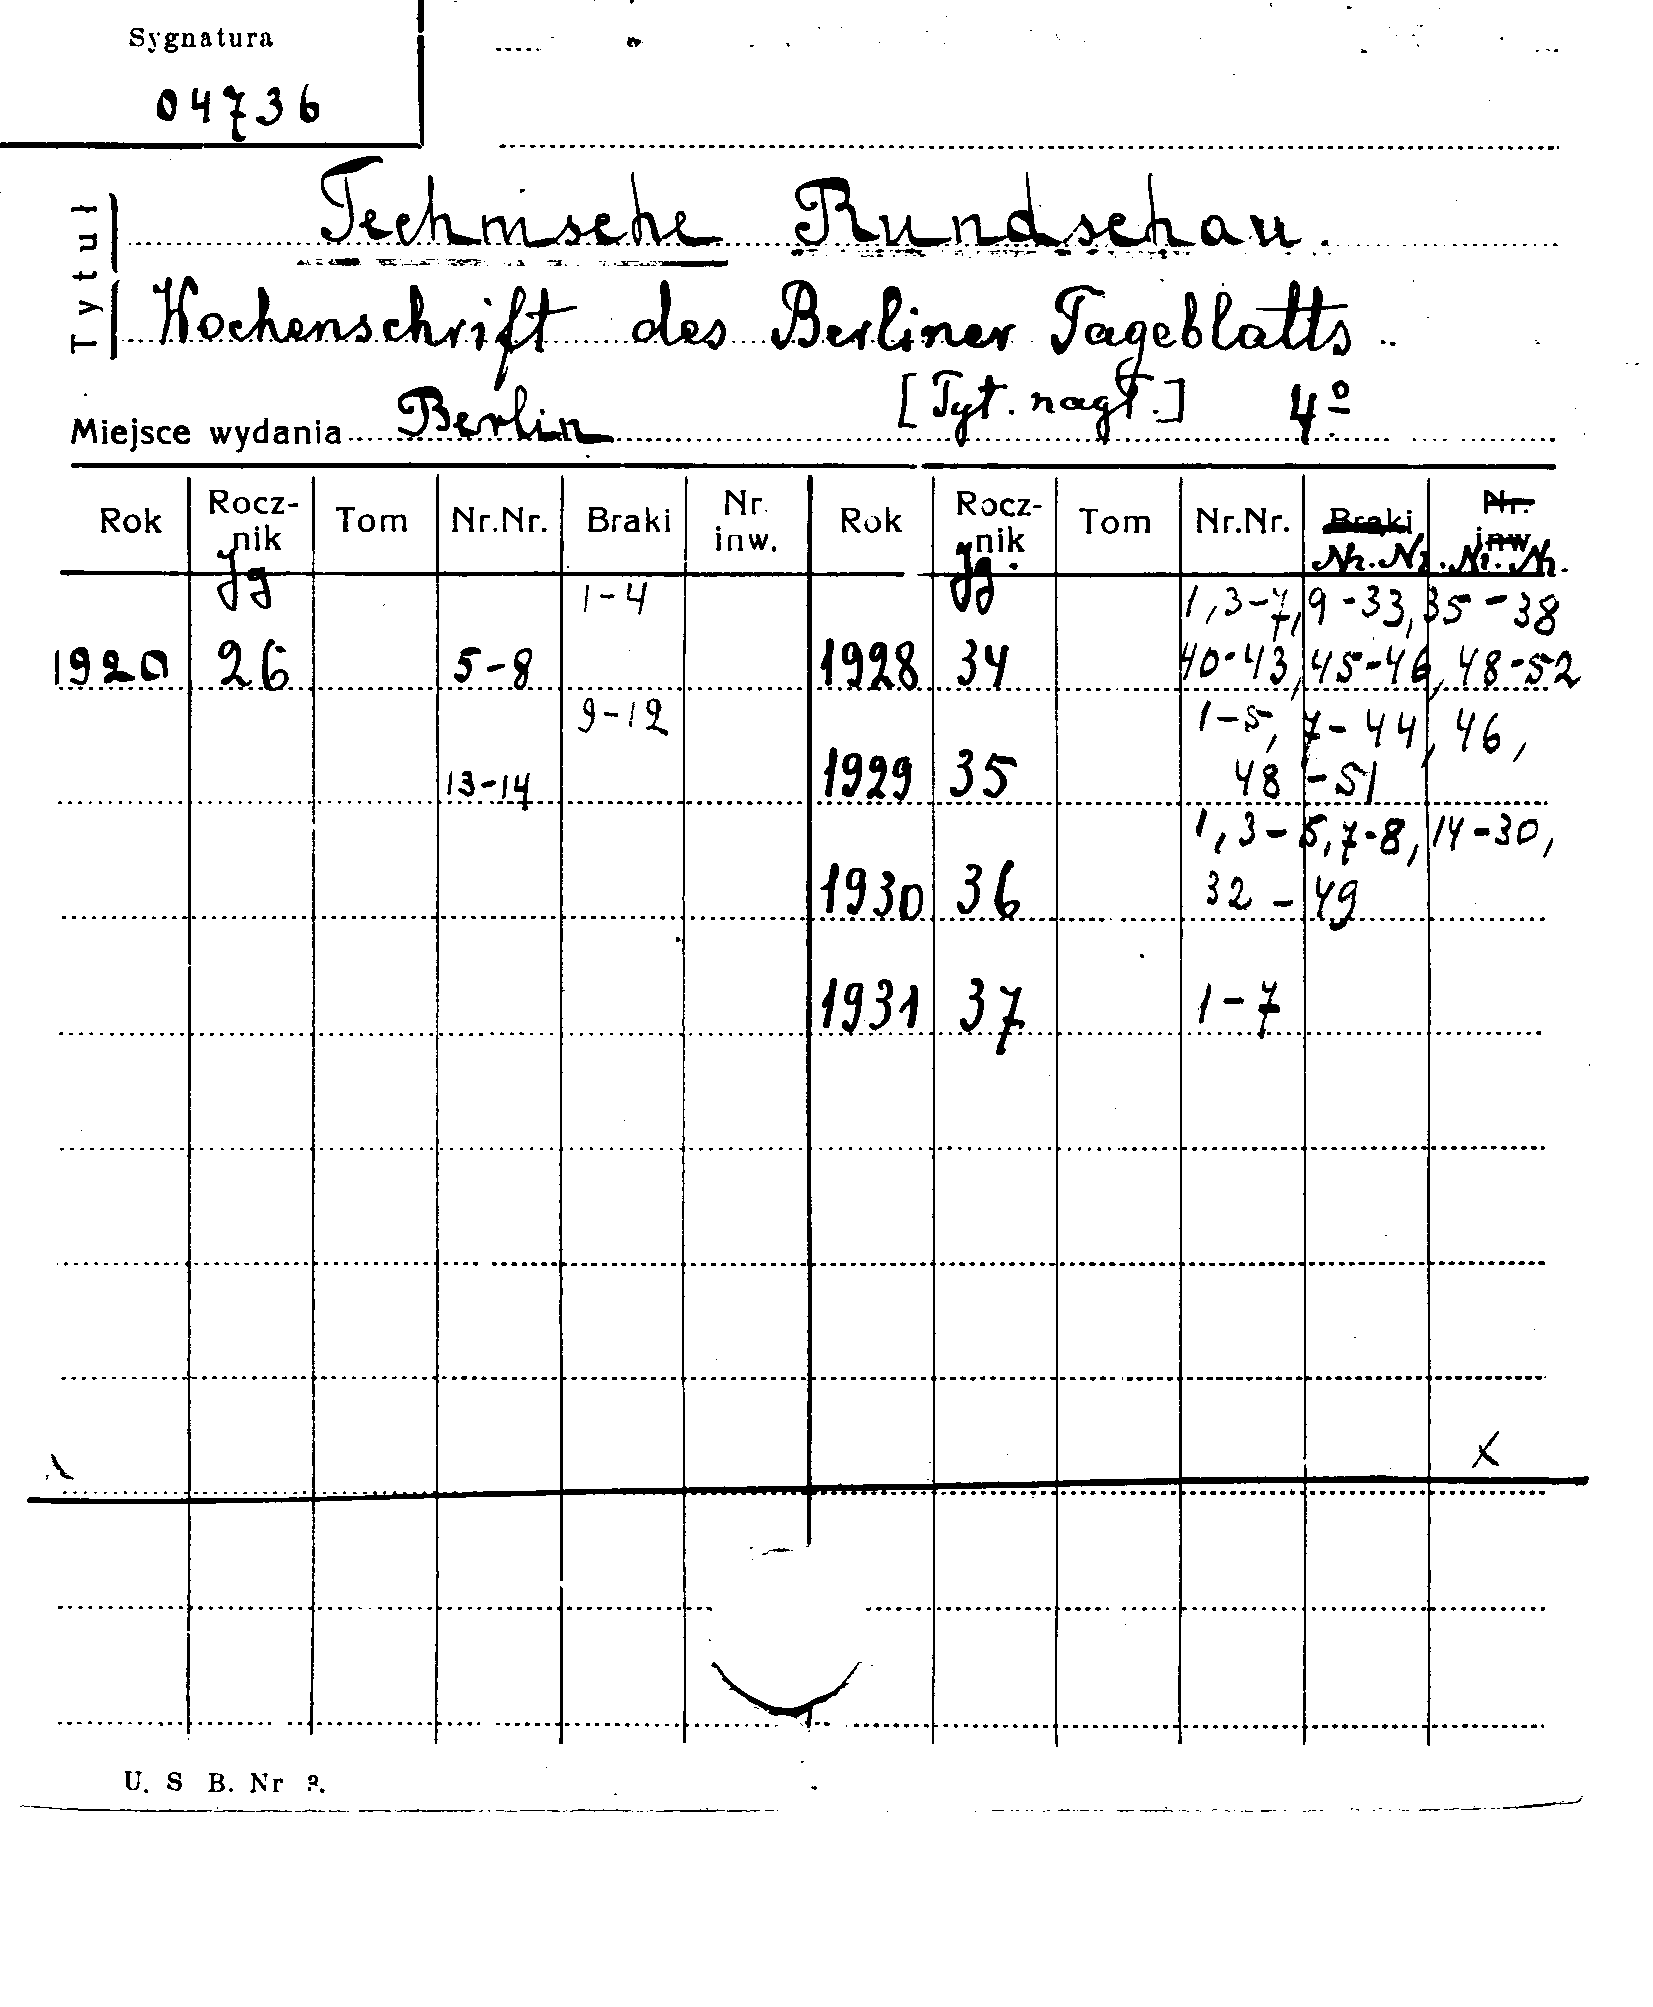 Sygnatura
04736
Tytuł
Technische Rundschau.
Wochenschrift des Berliner Tageblatts.
[Tyt. nagł.] 4º
Miejsce wydania Berlin
Rok Rocz-nik Tom Nr.Nr. Braki Nr. inw. Rok Rocz-nik Tom Nr.Nr. Braki Nr. inw.
Jg Jg. Nr. Nr. Nr. Nr.
1-4 1, 3-7, 9-33, 35-38
1920 26 5-8 1928 34 40-43, 45-46, 48-52
9-12 1-5, 7-44, 46,
13-14 1929 35 48-51
1, 3-5, 7-8, 14-30,
1930 36 32-49
1931 37 1-7
x
U. S B. Nr